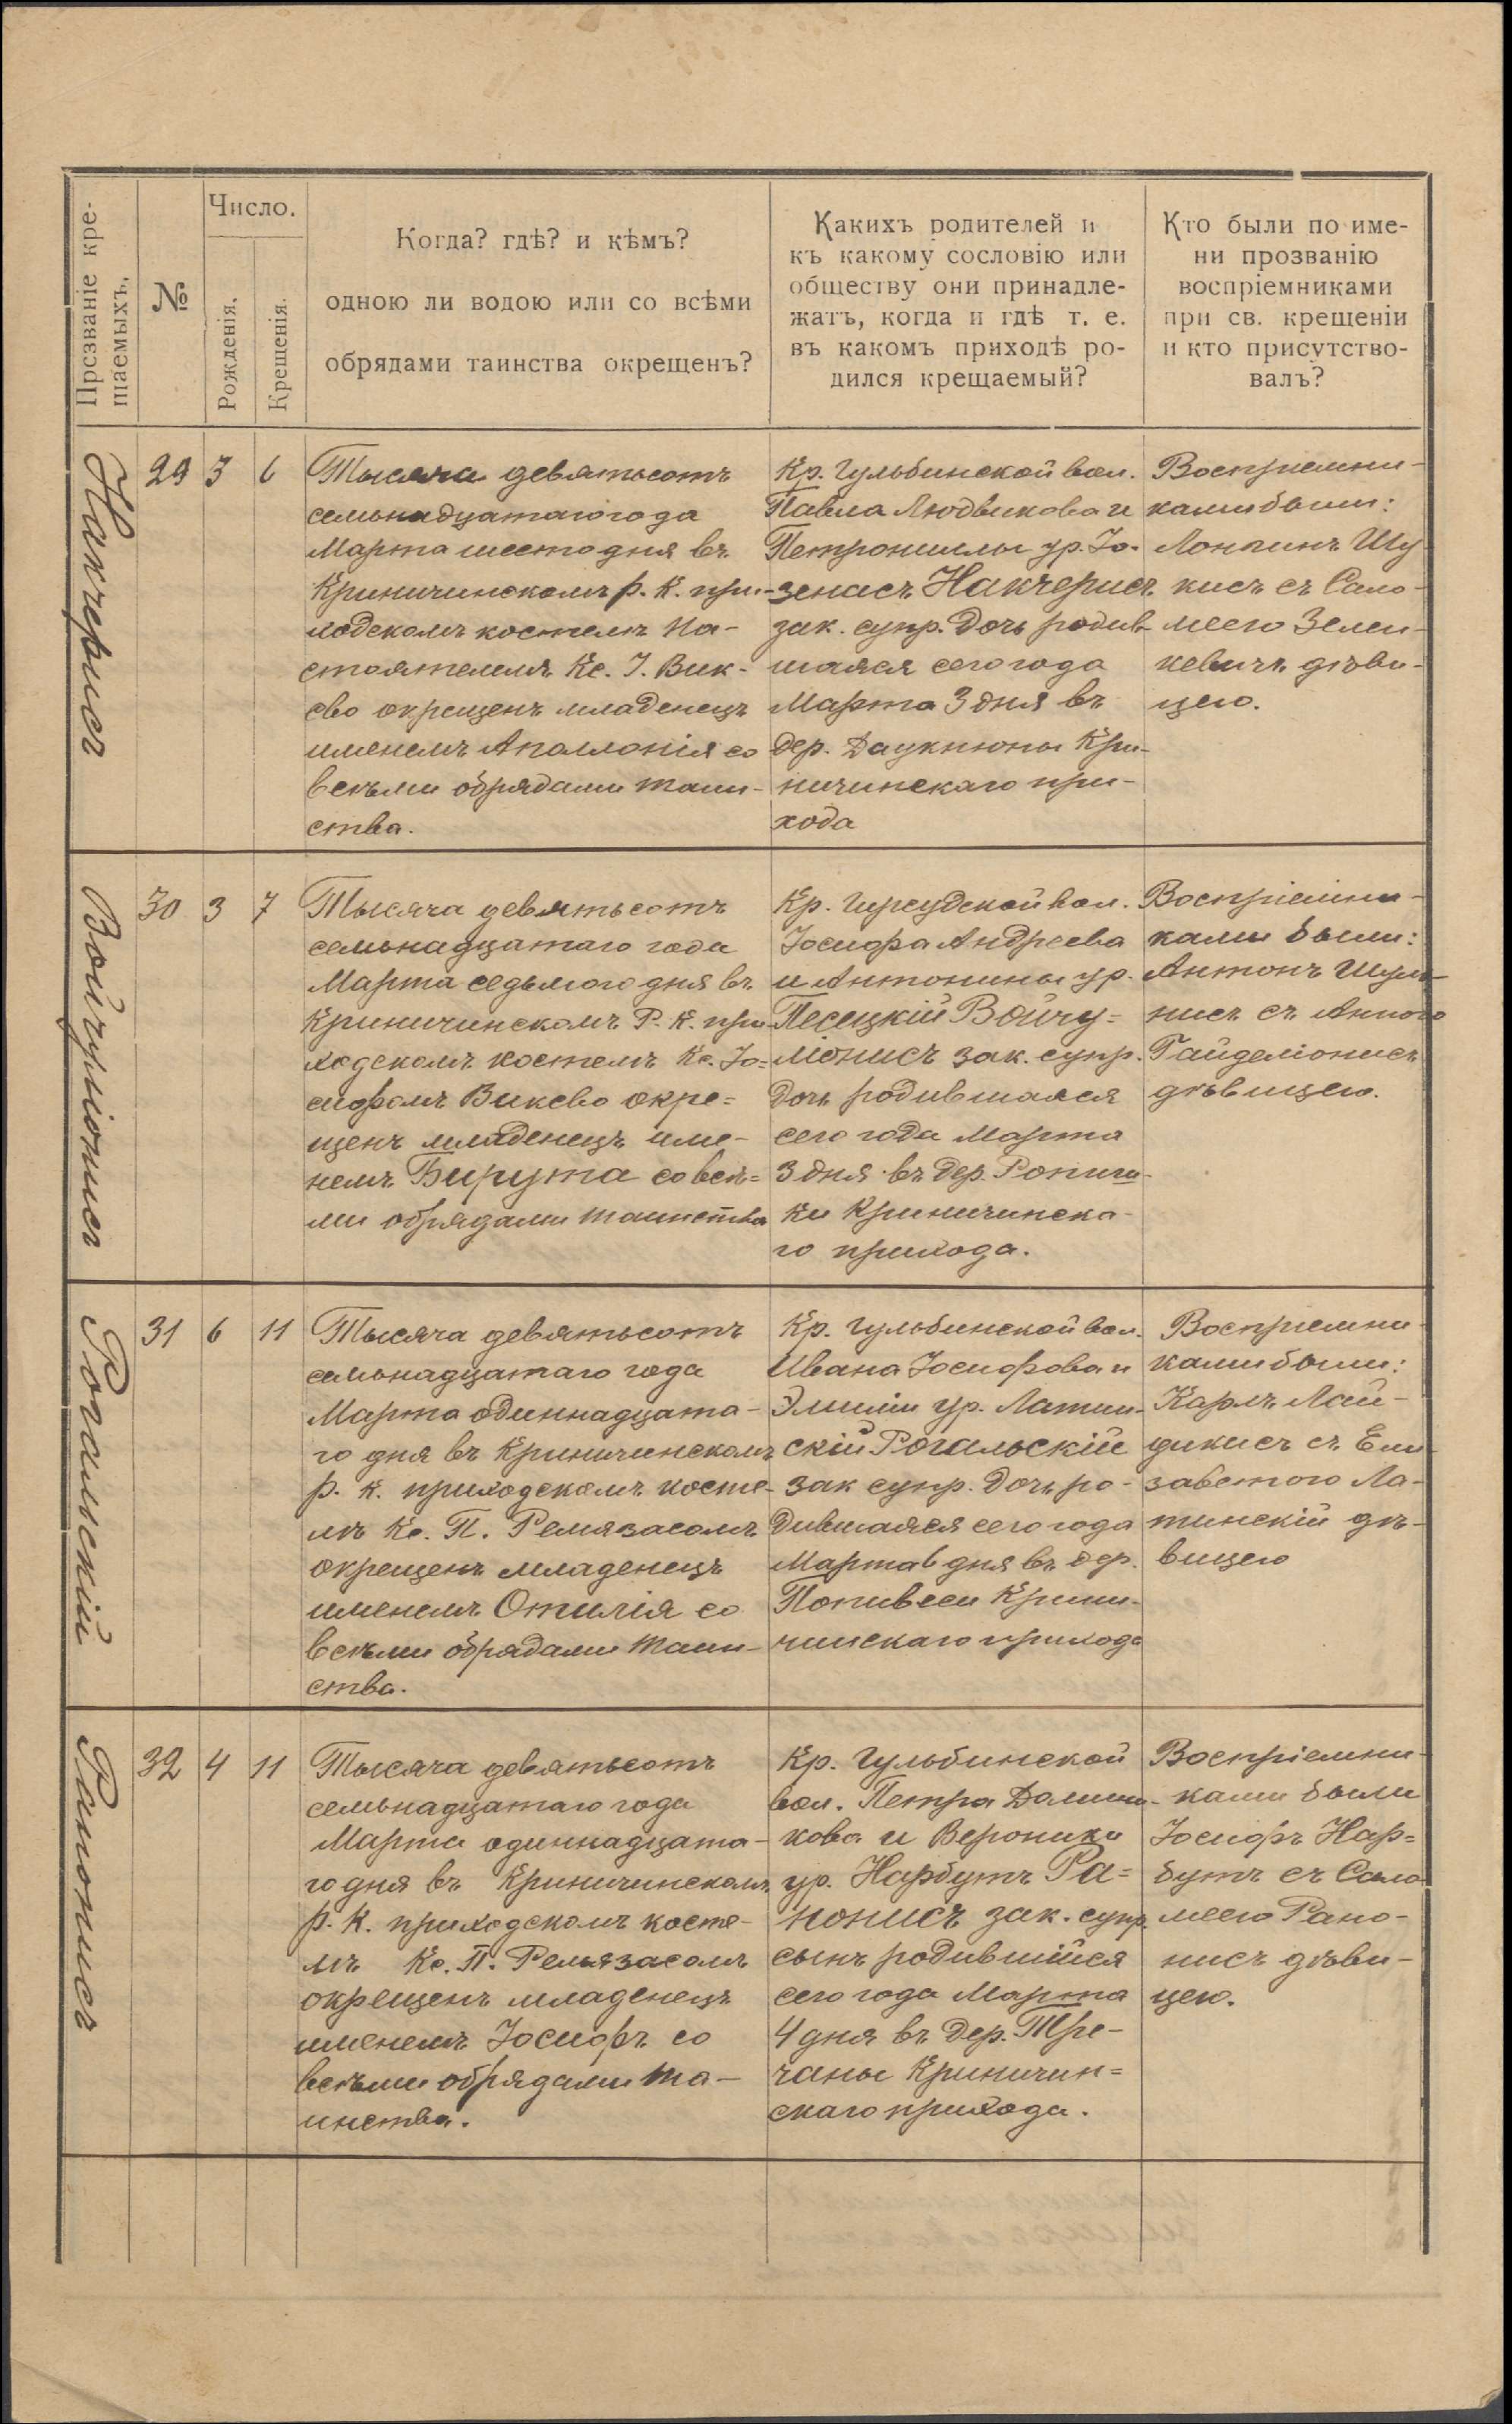 Прозваніе кре-
щаемыхъ.
№
Число.
Рожденія.
Крещенія.
Когда? гдѣ? и кѣмъ?
одною ли водою или со всѣми
обрядами таинства окрещенъ?
Какихъ родителей и
къ какому сословію или
обществу они принадле-
жатъ, когда и гдѣ т. е.
въ какомъ приходѣ ро-
дился крещаемый?
Кто были по име-
ни прозванію
воспріемниками
при св. крещеніи
и кто присутство-
валъ?
Накчерисъ
29 3 6
Тысяча девятьсотъ
семьнадцатаго года
Марта шесто дня въ
Криничинскомъ р. К. при-
ходскомъ костелѣ На-
стоятелемъ Кс. І. Вик-
сво окрещенъ младенецъ
именемъ Аполлонія со
всѣми обрядами таин-
ства.
Кр. Гульбинской вол.
Павла Людвикова и
Петрониллы ур. Ю-
зенасъ Накчерисъ
зак. супр. дочь родив-
шаяся сего года
Марта 3 дня въ
дер. Даукнюны Кри-
ничинскаго при-
хода
Воспріемни-
ками были:
Лонгинъ Шу-
кисъ съ Сало-
меею Зелен-
кевичъ дѣви-
цею.
Войчуліонисъ
30 3 7
Тысяча девятьсотъ
семьнадцатаго года
Марта седьмого дня въ
Криничинскомъ Р. К. при-
ходскомъ костелѣ Кс. Іо=
сифомъ Виксво окре=
щенъ младенецъ име-
немъ Бирута со всѣ=
ми обрядами таинства
Кр. Гирсудской вол.
Іосифа Андреева
и Антонины ур.
Песецкій Войчу=
ліонисъ зак. супр.
дочь родившаяся
сего года Марта
3 дня въ дер. Ропиги-
ки Криничинска-
го прихода.
Воспріемни-
ками были:
Антонъ Шуль-
нисъ съ Анною
Гайделіонисъ
дѣвицею.
Рогальскій
31 6 11
Тысяча девятьсотъ
семьнадцатаго года
Марта одиннадцата-
го дня въ Криничинскомъ
р. К. приходскомъ косте-
лѣ Кс. П. Ремязасомъ
окрещенъ младенецъ
именемъ Отилія со
всѣми обрядами таин-
ства.
Кр. Гульбинской вол.
Ивана Іосифова и
Эмиліи ур. Латин-
скій Рогальскій
зак супр. дочь ро-
дившаяся сего года
Марта 6 дня въ дер.
Попивеси Крини-
чинскаго прихода
Воспріемни-
ками были:
Карлъ Лай-
цикисъ съ Ели-
заветою Ла-
тинскій дѣ-
вицею
Рапонисъ
32 4 11
Тысяча девятьсотъ
семьнадцатаго года
Марта одиннадцата-
го дня въ Криничинскомъ
р. К. приходскомъ косте-
лѣ Кс. П. Ремязасомъ
окрещенъ младенецъ
именемъ Іосифъ со
всѣми обрядами та-
инства.
Кр. Гульбинской
вол. Петра Домини-
кова и Вероники
ур. Нарбутъ Ра=
понисъ зак. супр
сынъ родившійся
сего года Марта
4 дня въ дер. Тре-
чаны Криничин=
скаго прихода.
Воспріемни-
ками были
Іосифъ Нар=
бутъ съ Сало-
меею Рапо-
нисъ дѣви-
цею.